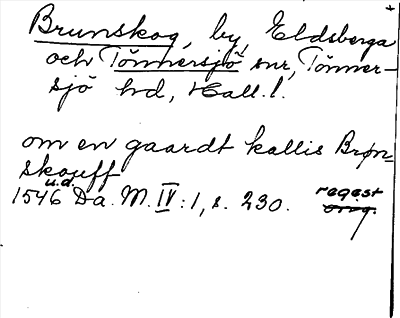 Brunskog, by, Eldsberga
och Tönnersjö snr, Tönner-
sjö hd, Hall. l.
om en gaardt kallis Brøn-
skouff
u.d.
1546 Da. M. IV:1, s. 230. regest
orig.